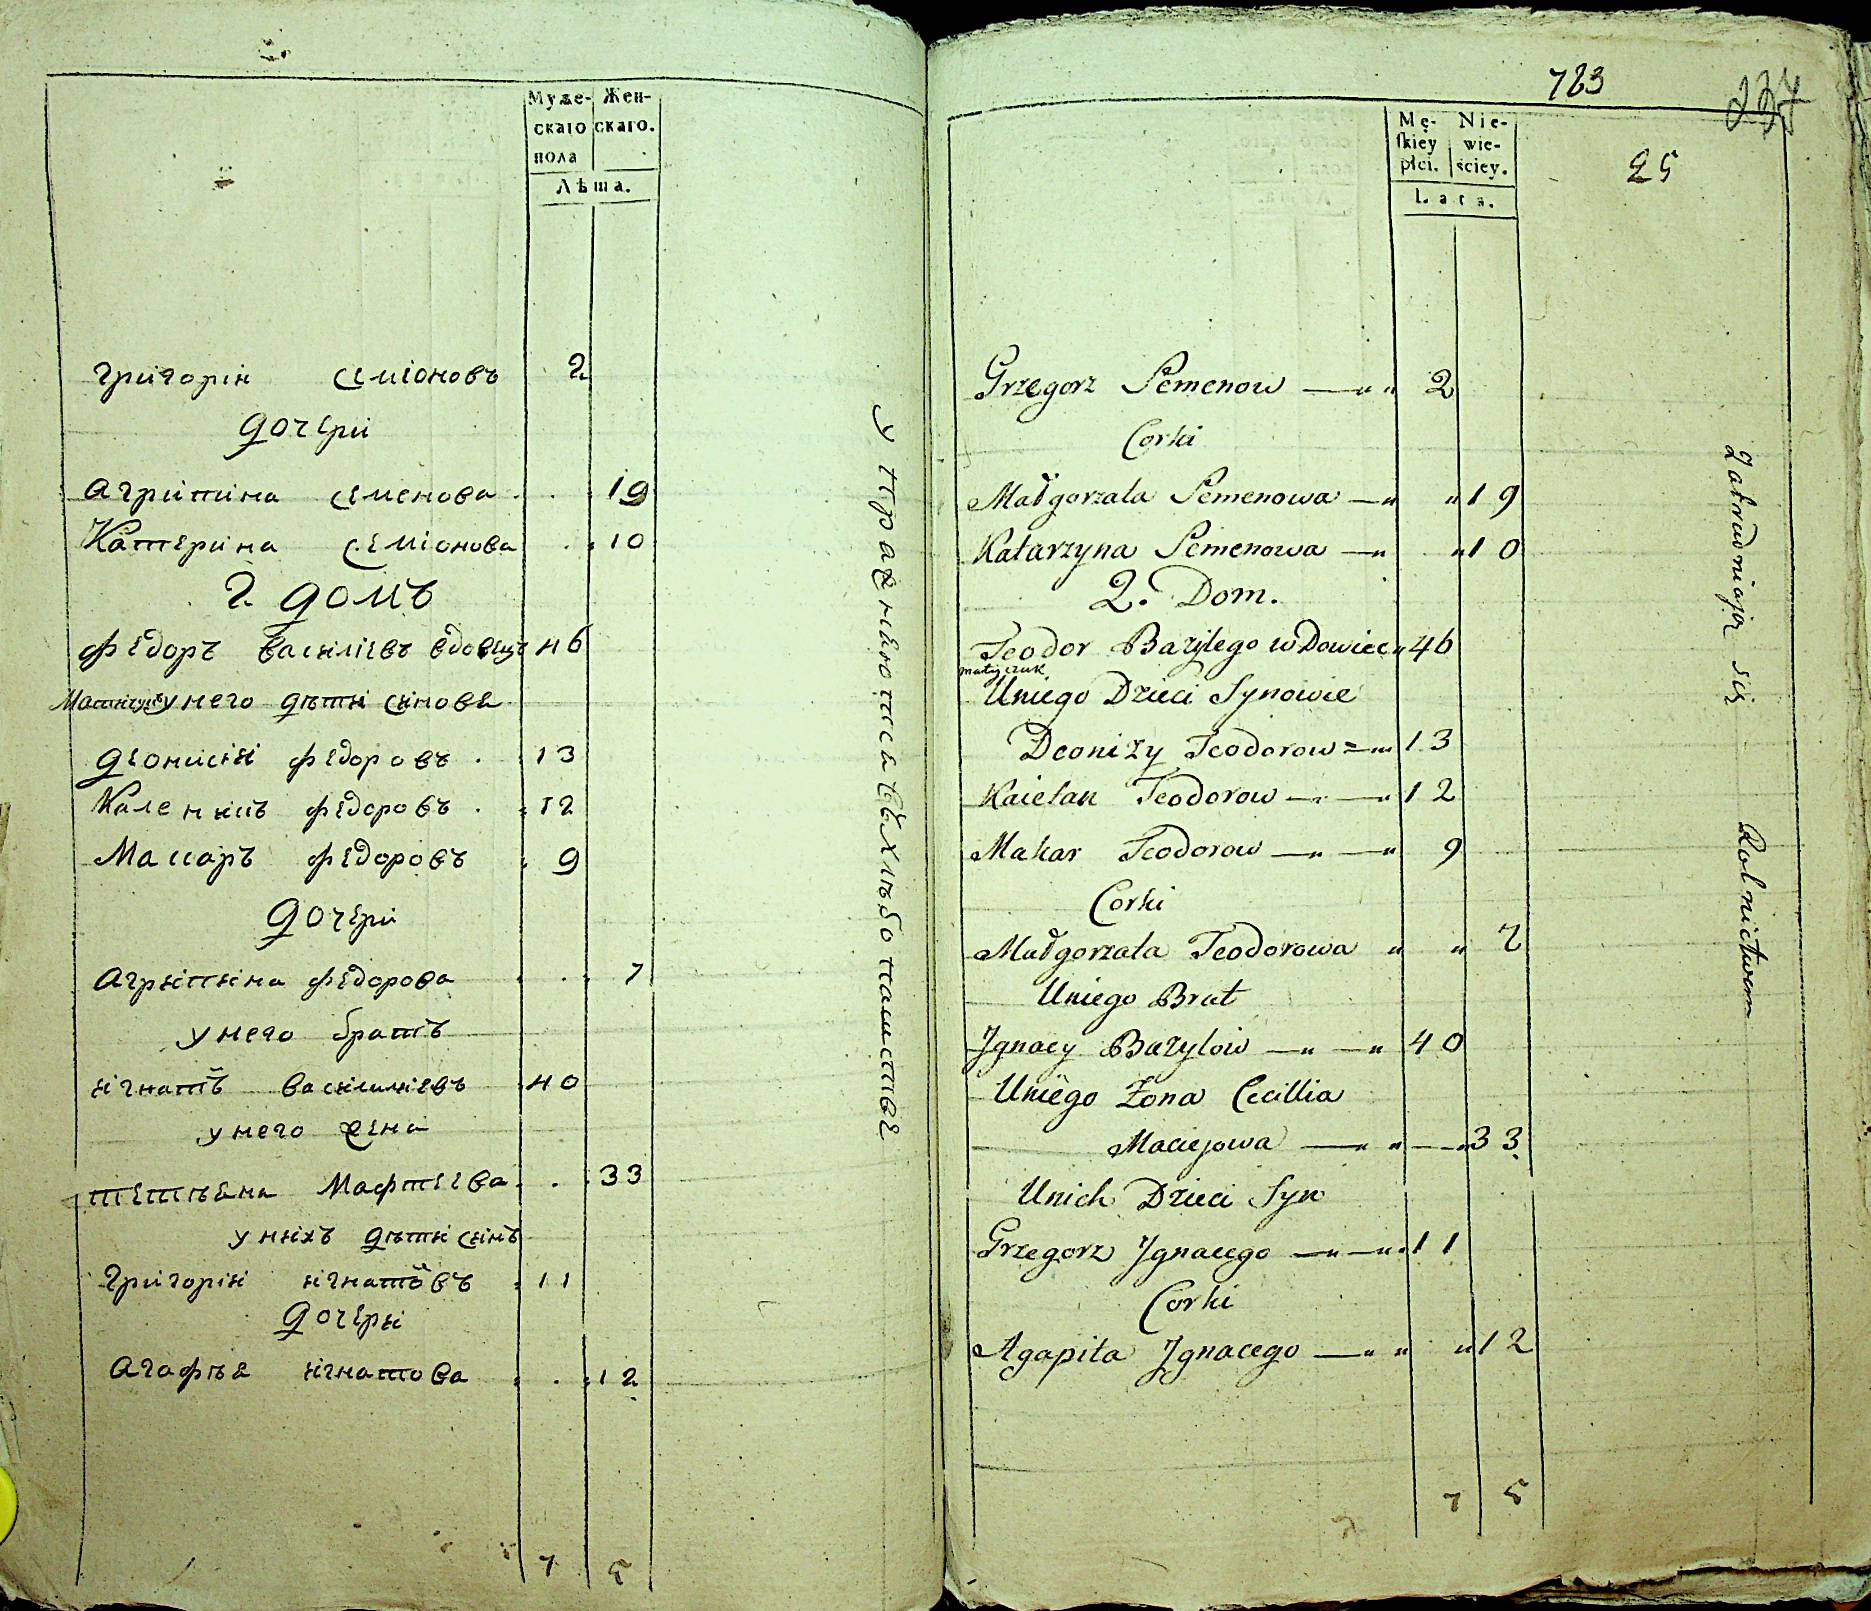 Муже- Жен-
скаго скаго.
пола
Лѣта.
Григорій Семіоновъ 2
дочери
Агрипина Семенова 19
Катерина Семіонова 10
2. домъ
Федоръ Василіевъ вдовецъ 46
у него дѣти синовя
Деонисій Федоровъ 13
Каленикъ Федоровъ 12
Макаръ Федоровъ 9
дочери
Агрипина Федорова 7
у него братъ
Игнатъ Василиевъ 40
у него жена
Тетяна Мафтеева 33
у нихъ дѣти синъ
Григорій Игнатовъ 11
дочери
Агафья Игнатова 12
7 5
Упражняются въ хлѣбопашстве
723
237
25
Mę- Nie-
skiey wie-
płci. ściey.
Lata.
Grzegorz Semenow 2
Corki
Małgorzata Semenowa 19
Katarzyna Semenowa 10
2. Dom.
Teodor Bazylego wdowiec 46
Matyjczuk
Uniego Dzieci Synowie
Deonizy Teodorow 13
Kaietan Teodorow 12
Makar Teodorow 9
Corki
Małgorzata Teodorowa 7
Uniego Brat
Jgnacy Bazylow 40
Uniego Żona Cecillia
Maciejowa 33
Unich Dzieci Syn
Grzegorz Jgnacego 11
Corki
Agapita Jgnacego 12
7 5
Zatrudniają się Rolnictwem